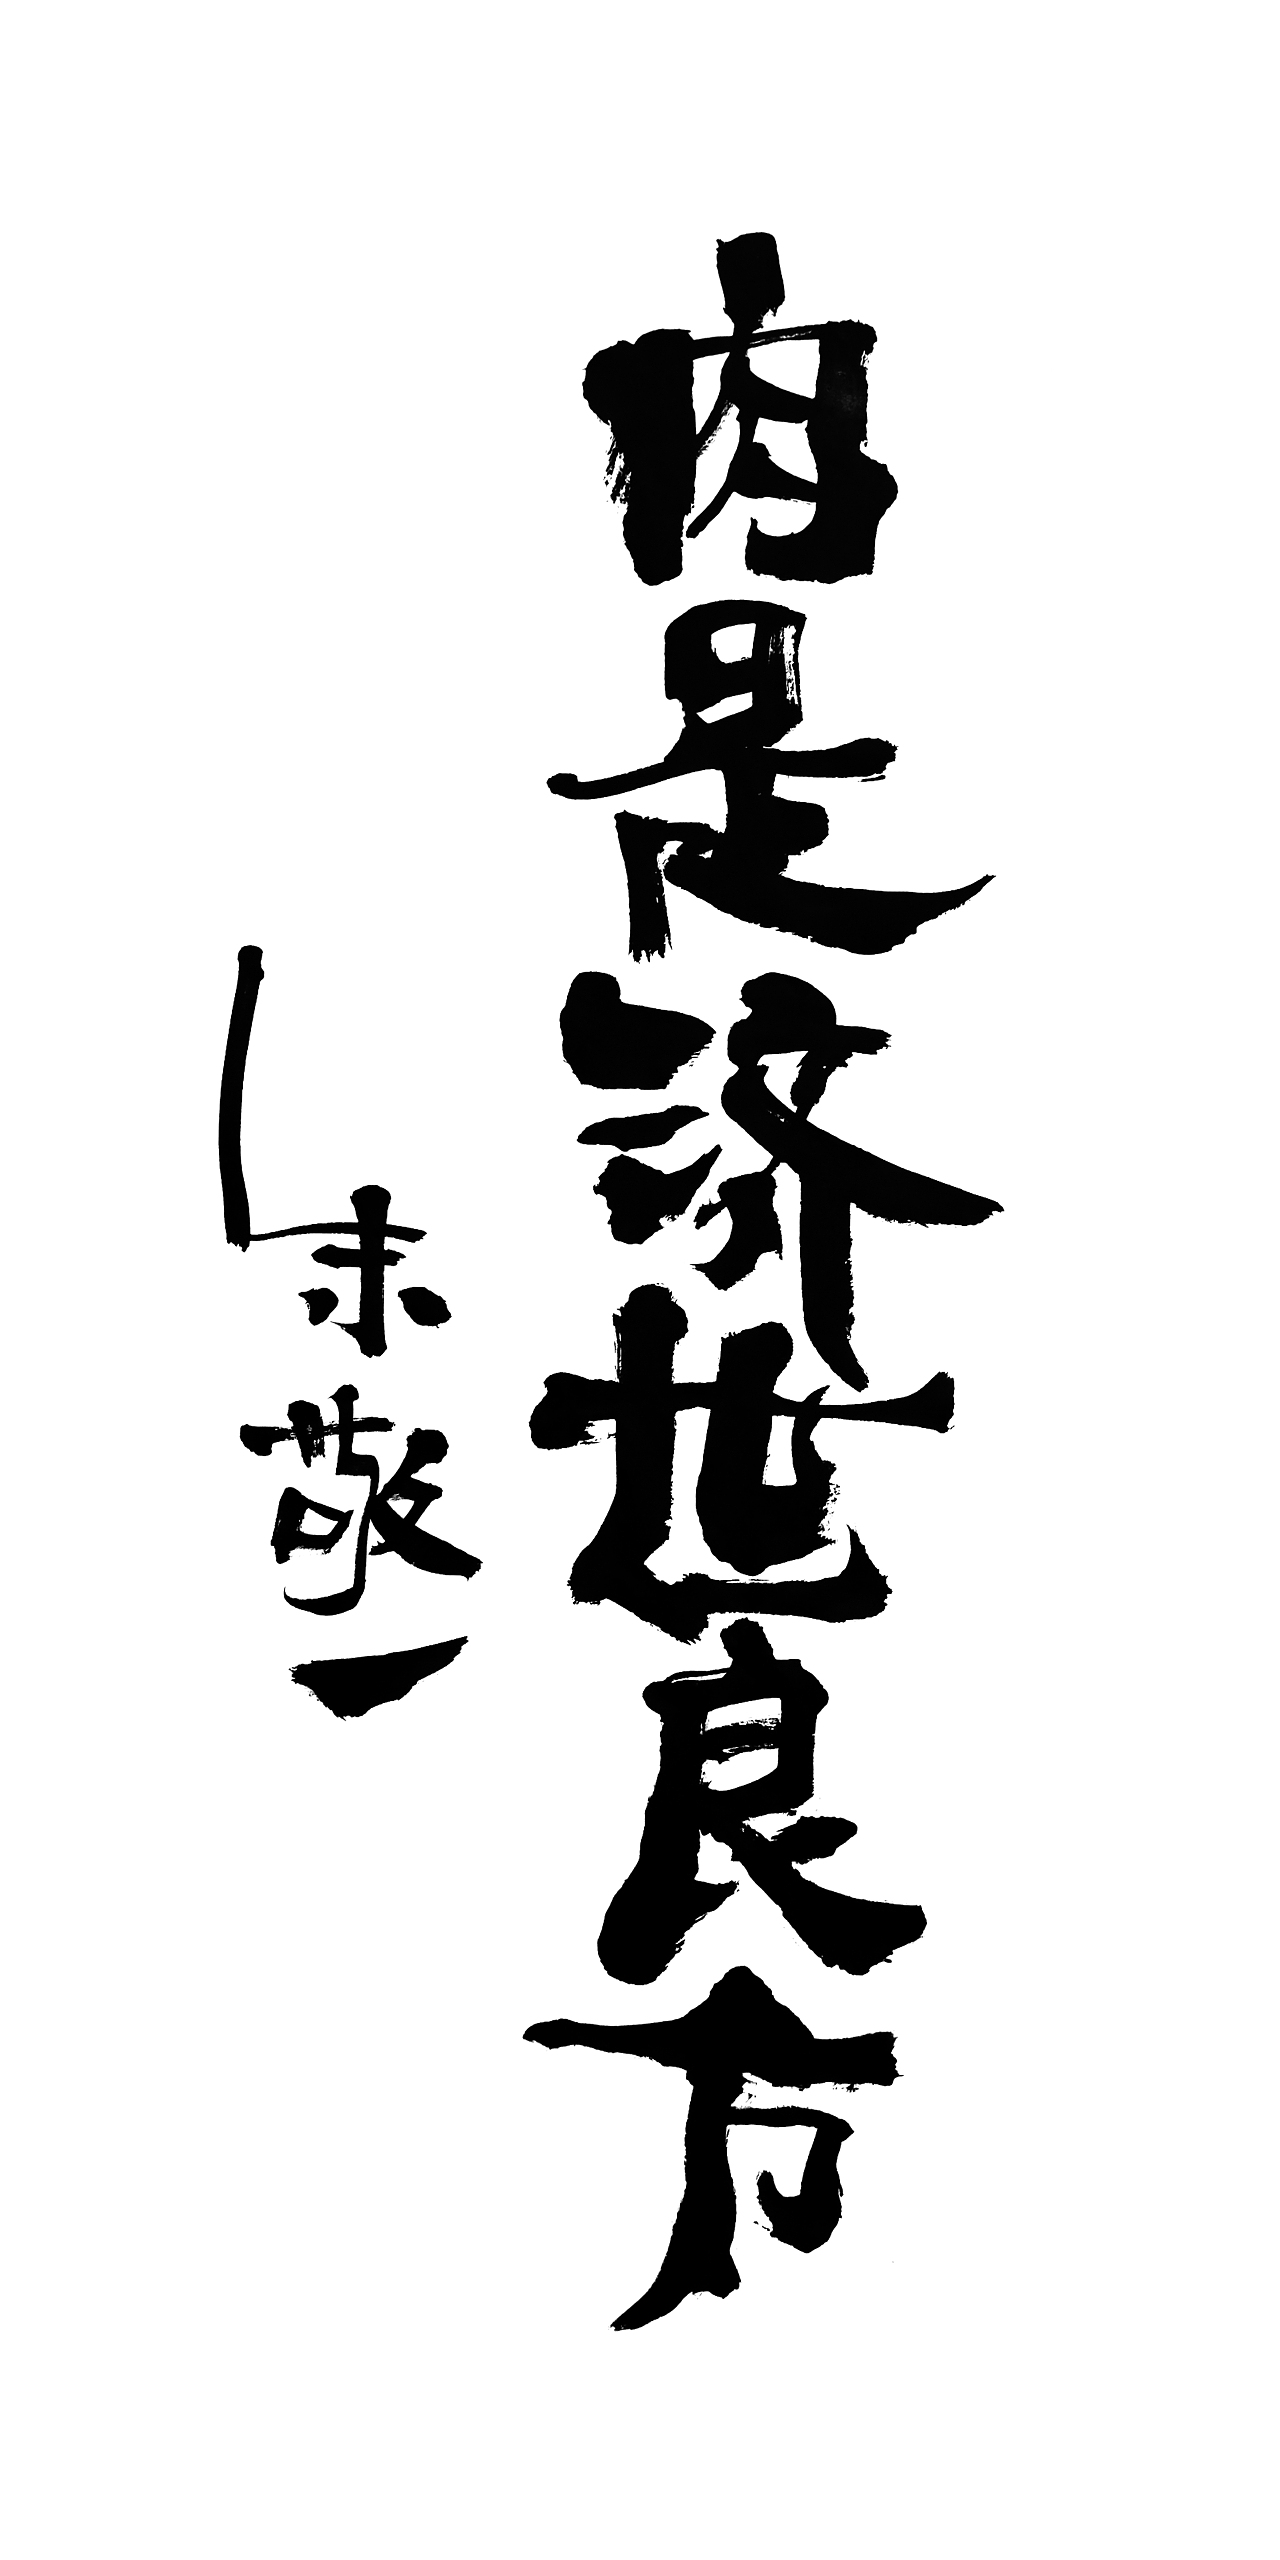 肉是济世良方
朱敬一